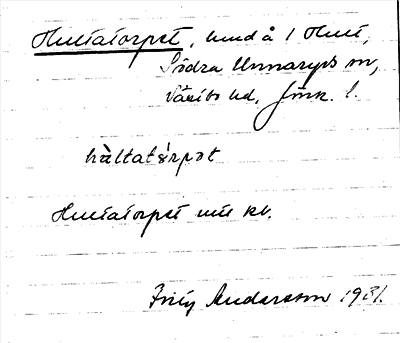 Hultatorpet, lund å 1 Hult,
Södra Unnaryds sn,
Västbo hd, Jönk. l.
hàltatórpət
Hultatorpet utt kb.
Andersson 1931.